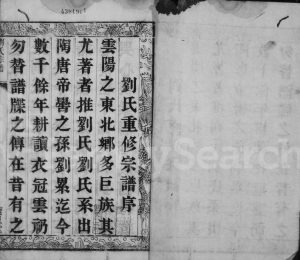 劉氏重修宗譜序
雲陽之東北鄉多巨族其
尤著者推劉氏劉氏系出
陶唐帝嚳之孫劉累迄今
數千餘年耕讀衣冠雲礽
勿替譜牒之傳在昔有之